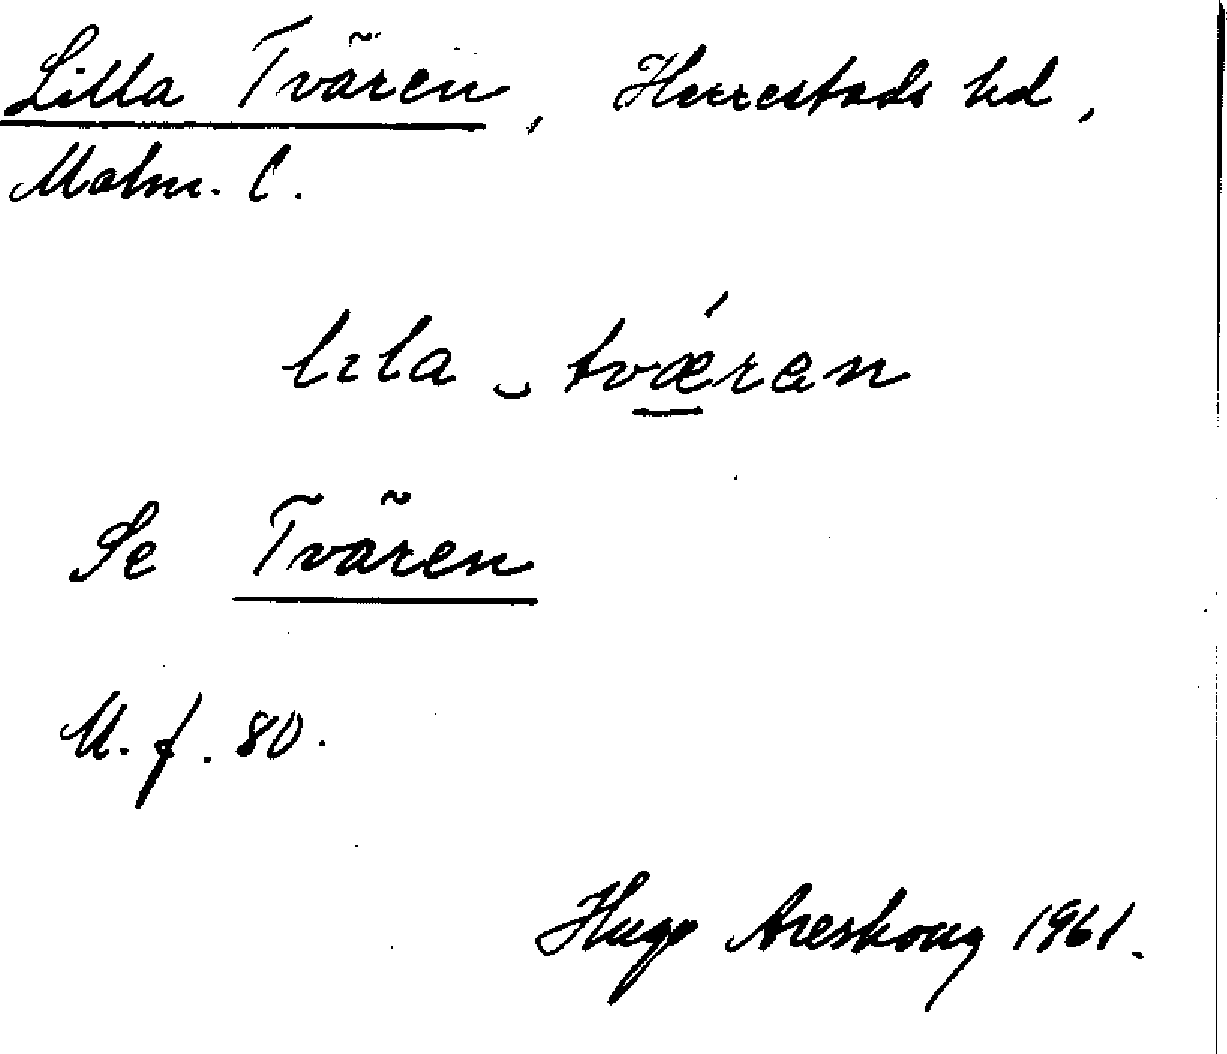 Lilla Tvären, Herrestads hd,
Malm. l.
lila ‿ tvǽran
Se Tvären
U. f. 80.
Hugo Areskoug 1961.